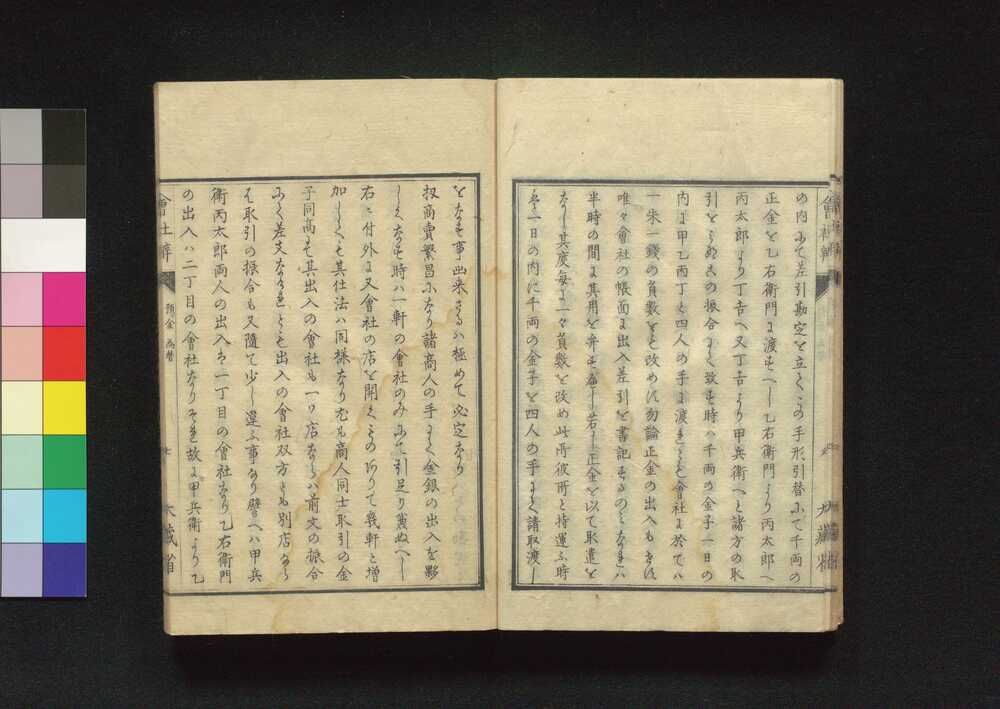 の内にて差引勘定を立てこの手形引替にて千両の
正金を乙右衛門に渡すへし乙右衛門より丙太郎へ
丙太郎より丁吉へ又丁吉より甲兵衛へと諸方の取
引をこの振合にて致す時ハ千両の金子一日の
内に甲乙丙丁と四人の手に渡れとも會社に於てハ
一朱一錢の員數をも改めす勿論正金の出入もせす
唯々會社の帳面に出入差引を書記するのミなれハ
半時の間に其用を弁すへし若し正金を以て取遣を
なし其度毎に一々員數を改め此所彼所と持運ふ時
ハ一日の内に千両の金子を四人の手にて請取渡し
をなす事出来さるハ極めて必定なり
扨商賣繁昌になり諸商人の手にて金銀の出入を夥
しくなす時ハ一軒の會社のみにて引足り兼ぬへし
右ニ付外に又會社の店を開くものありて幾軒と増
加しても其仕法ハ同様なり尤も商人同士取引の金
子同高にて其出入の會社も一ツ店ならハ前文の振合
にて差支なけれとも出入の會社双方とも別店なら
は取引の振合も又隨て少しく違ふ事あり譬へハ甲兵
衛丙太郎両人の出入ハ一丁目の會社なり乙右衛門
の出入ハ二丁目の會社なりそれ故に甲兵衛より乙
會社辨
預金 為替
七
大藏省